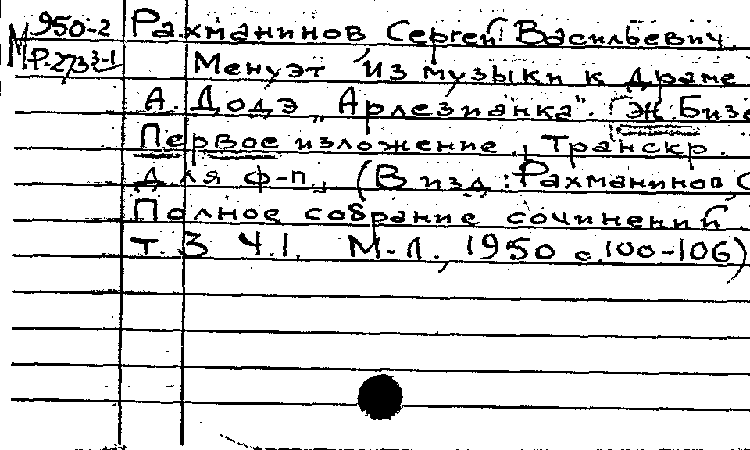 М 950-2 Рахманинов Сергей Васильевич.
Р-2733-1 Менуэт из музыки к драме
А. Додэ „Арлезианка". Ж. Бизе
Первое изложение. Транскр.
для ф-п. (В изд.: Рахманинов, С
Полное собрание сочинений
т. 3 ч.1. М-Л., 1950 с.100-106)